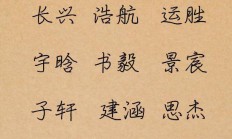 长兴 浩航 运胜
宇晗 书毅 景宸
子轩 建涵 思杰